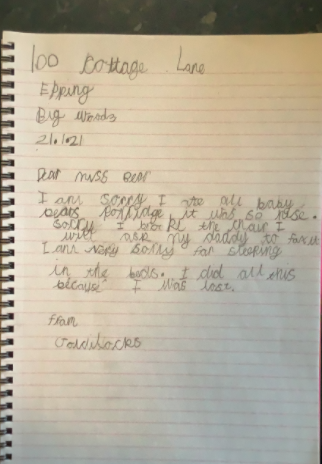 100 Cottage Lane
Epping
Big Words
21.1.21
Dear miss Bear
I am sorry I ate all baby
bears porridge it was so nise.
Sorry I broke the chair I
will ask my daddy to fix it
I am very sorry for sleeping
in the beds. I did all this
because I was lost.
from
Goldilocks